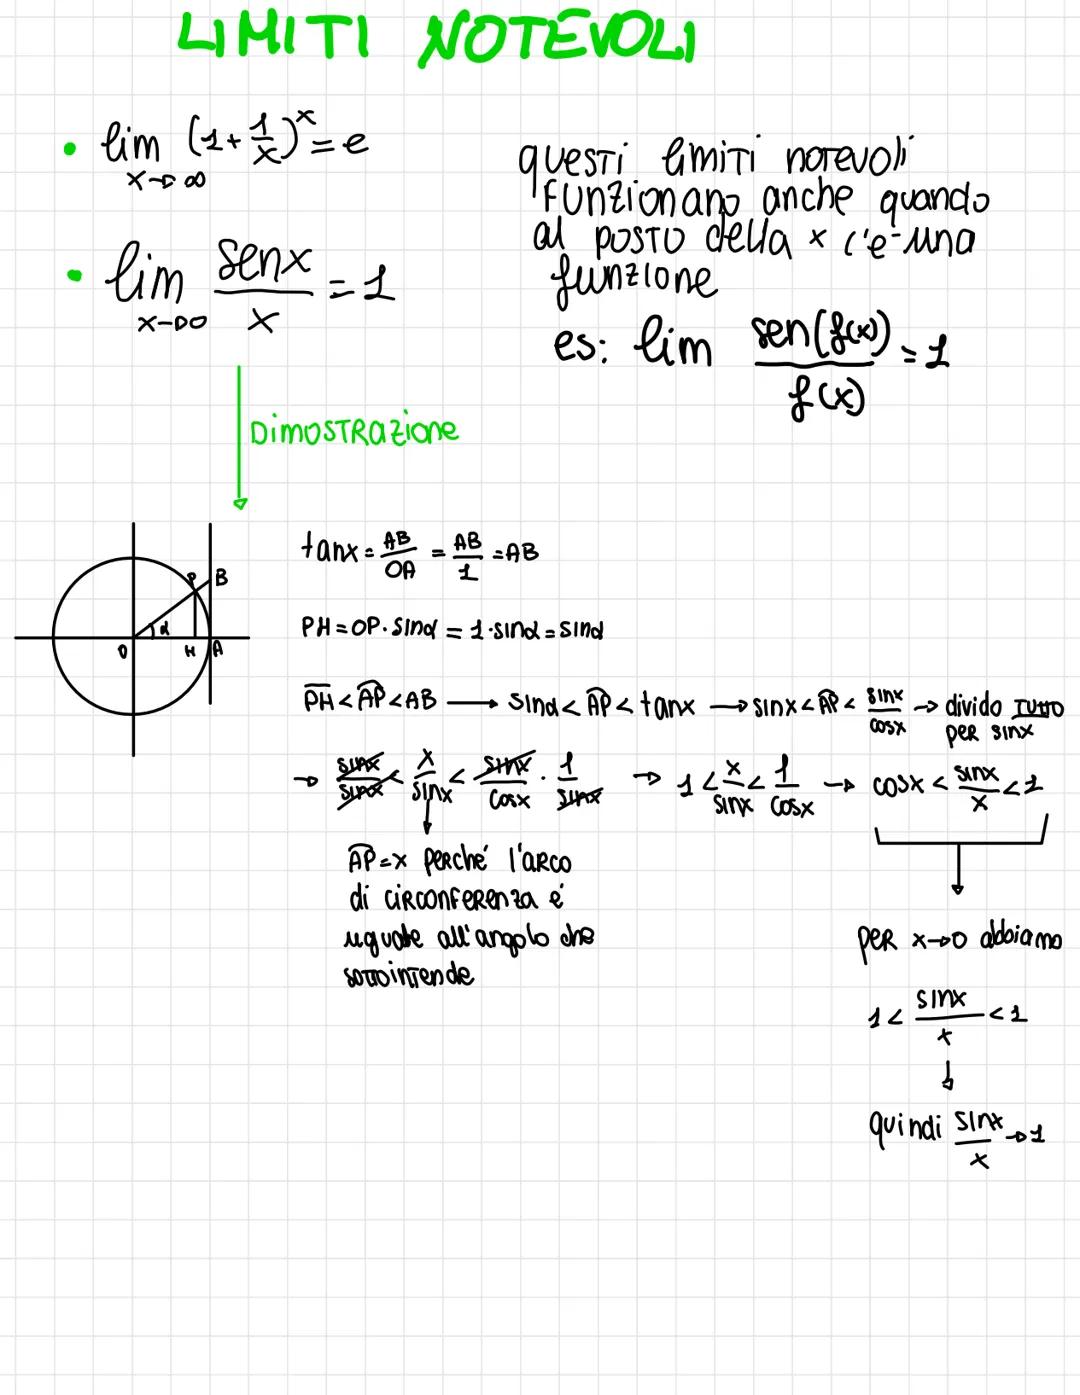 LIMITI NOTEVOLI
• lim (1+1/x)^x = e
x→∞
• lim senx/x = 1
x→0
questi limiti notevoli
funzionano anche quando
al posto della x c'è una
funzione
es: lim sen(f(x))/f(x) = 1
Dimostrazione
P B
α
O H A
tanx = AB/OA = AB/1 = AB
PH = OP · sinα = 1 · sinα = sinα
PH < AP < AB → sinα < AP < tanx → sinx < AP < sinx/cosx → divido TUTTO
per sinx
→ sinx/sinx < x/sinx < sinx/cosx · 1/sinx → 1 < x/sinx < 1/cosx → cosx < sinx/x < 1
AP = x perché l'arco
di circonferenza é
uguale all'angolo che
sottointende
per x→0 abbiamo
1 < sinx/x < 1
quindi sinx/x → 1